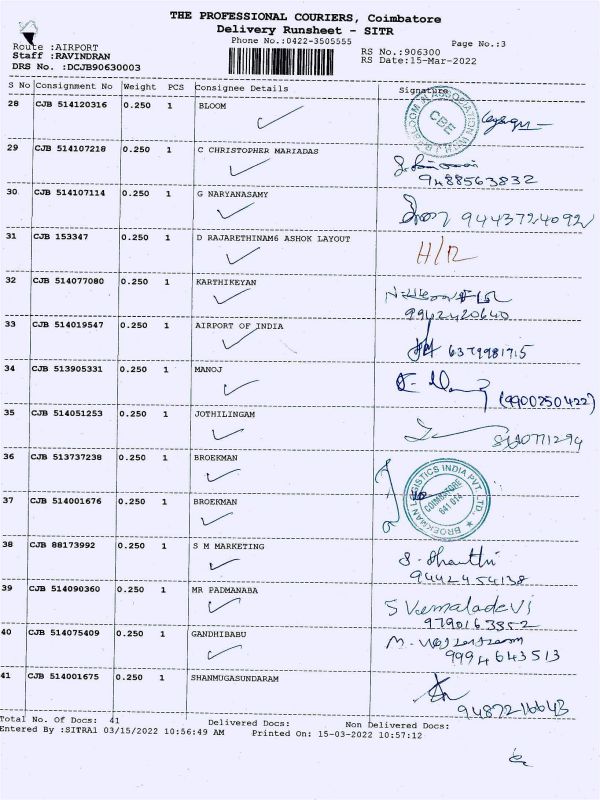 THE PROFESSIONAL COURIERS, Coimbatore
Delivery Runsheet - SITR
Phone No.:0422-3505555
Page No.:3
Route :AIRPORT
Staff :RAVINDRAN
DRS No. :DCJB90630003
RS No.:906300
RS Date:15-Mar-2022
S No Consignment No Weight PCS Consignee Details Signature
28 CJB 514120316 0.250 1 BLOOM
CBE
29 CJB 514107218 0.250 1 C CHRISTOPHER MARIADAS
9488563832
30 CJB 514107114 0.250 1 G NARYANASAMY
9443724092
31 CJB 153347 0.250 1 D RAJARETHINAM6 ASHOK LAYOUT H/R
32 CJB 514077080 0.250 1 KARTHIKEYAN
9942420640
33 CJB 514019547 0.250 1 AIRPORT OF INDIA
6379981715
34 CJB 513905331 0.250 1 MANOJ
(9900250422)
35 CJB 514051253 0.250 1 JOTHILINGAM
36 CJB 513737238 0.250 1 BROEKMAN
BROEKMAN LOGISTICS INDIA PVT. LTD.
COIMBATORE
641 014
37 CJB 514001676 0.250 1 BROEKMAN
38 CJB 88173992 0.250 1 S M MARKETING
S. Shanthi
9442454138
39 CJB 514090360 0.250 1 MR PADMANABA
S Vemaladevi
9790163352
40 CJB 514075409 0.250 1 GANDHIBABU
9994643513
41 CJB 514001675 0.250 1 SHANMUGASUNDARAM
9487216643
Total No. Of Docs: 41 Delivered Docs: Non Delivered Docs:
Entered By :SITRA1 03/15/2022 10:56:49 AM Printed On: 15-03-2022 10:57:12